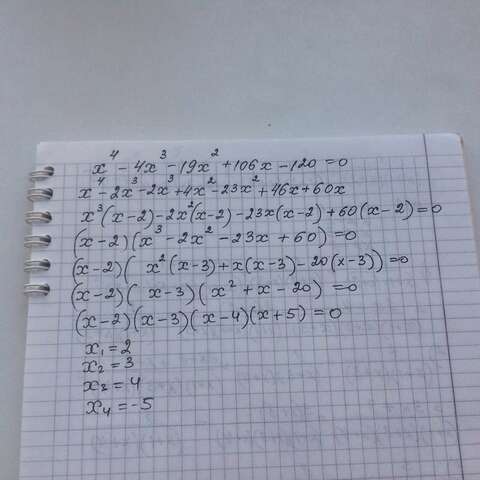 x⁴ - 4x³ - 19x² + 106x - 120 = 0
x⁴ - 2x³ - 2x³ + 4x² - 23x² + 46x + 60x
x³(x-2) - 2x²(x-2) - 23x(x-2) + 60(x-2) = 0
(x-2)(x³ - 2x² - 23x + 60) = 0
(x-2)( x²(x-3) + x(x-3) - 20(x-3)) = 0
(x-2)( x-3)( x² + x - 20) = 0
(x-2)(x-3)(x-4)(x+5) = 0
x₁ = 2
x₂ = 3
x₃ = 4
x₄ = -5